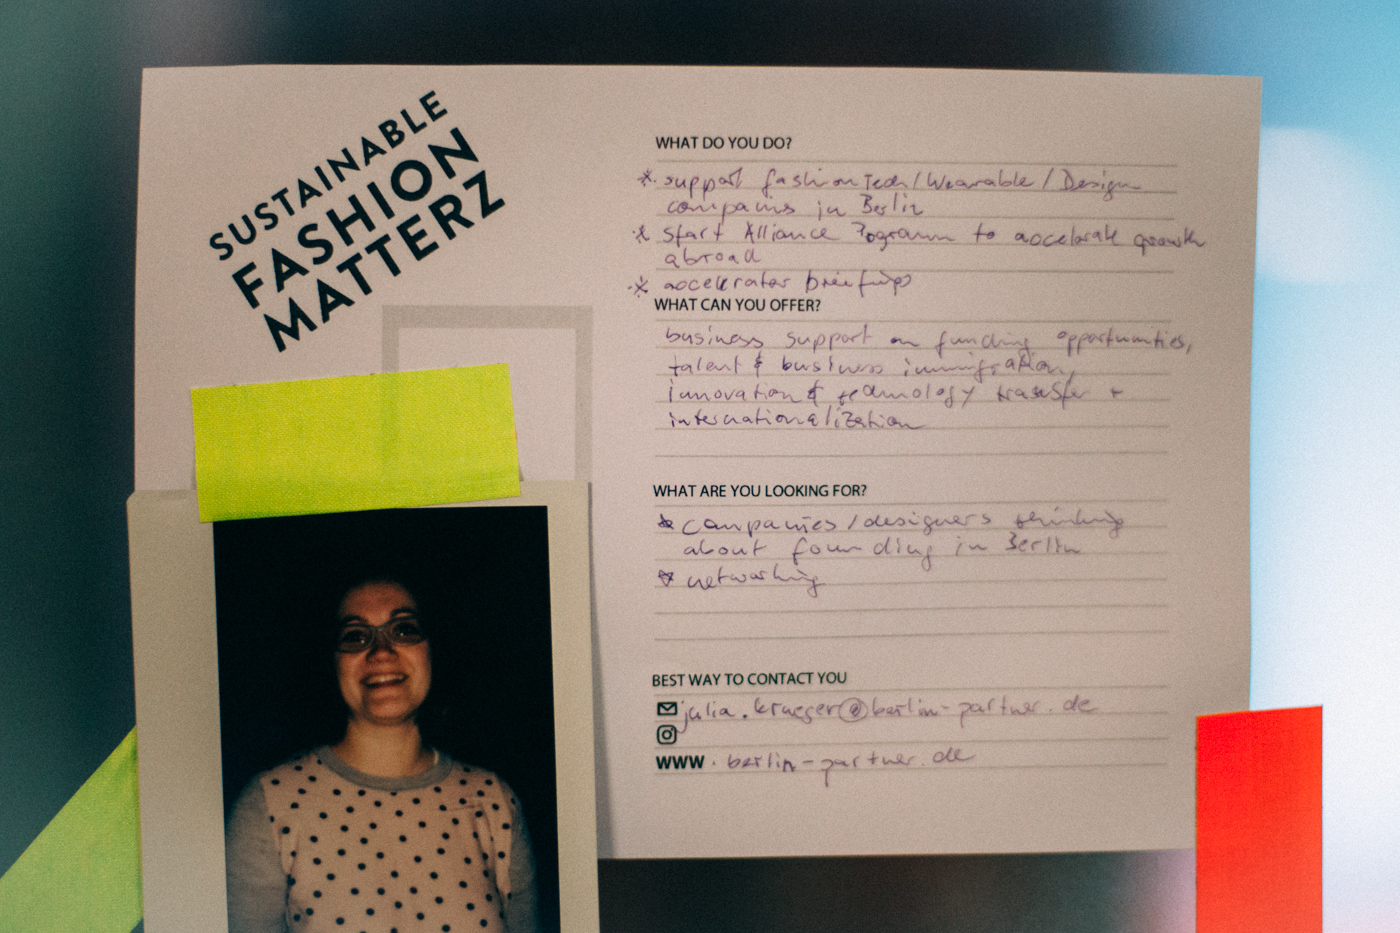 SUSTAINABLE
FASHION
MATTERZ
WHAT DO YOU DO?
* support FashionTech/Wearable/Design
companies in Berlin
* Start Alliance Programm to accelerate growth
abroad
* accelerator briefings
WHAT CAN YOU OFFER?
business support on funding opportunities,
talent & business immigration,
innovation & technology transfer +
internationalization
WHAT ARE YOU LOOKING FOR?
* companies/designers thinking
about founding in Berlin
* networking
BEST WAY TO CONTACT YOU
julia.krueger@berlin-partner.de
WWW.berlin-partner.de